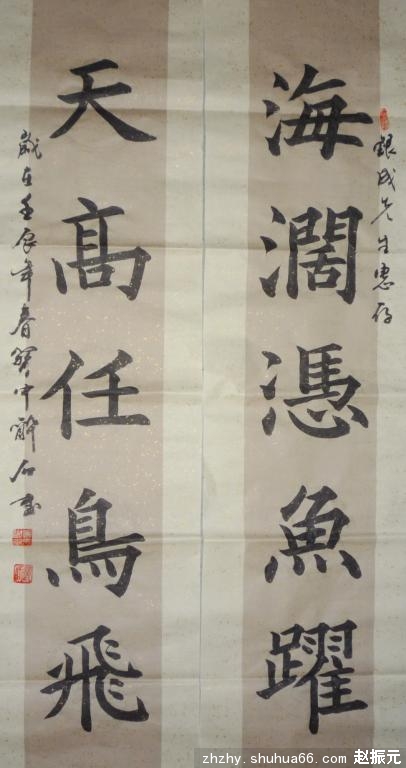 海濶憑魚躍
天高任鳥飛
銀成先生惠存
歲在壬辰年春 中 石書
zhzhy.shuhua66.com 赵振元